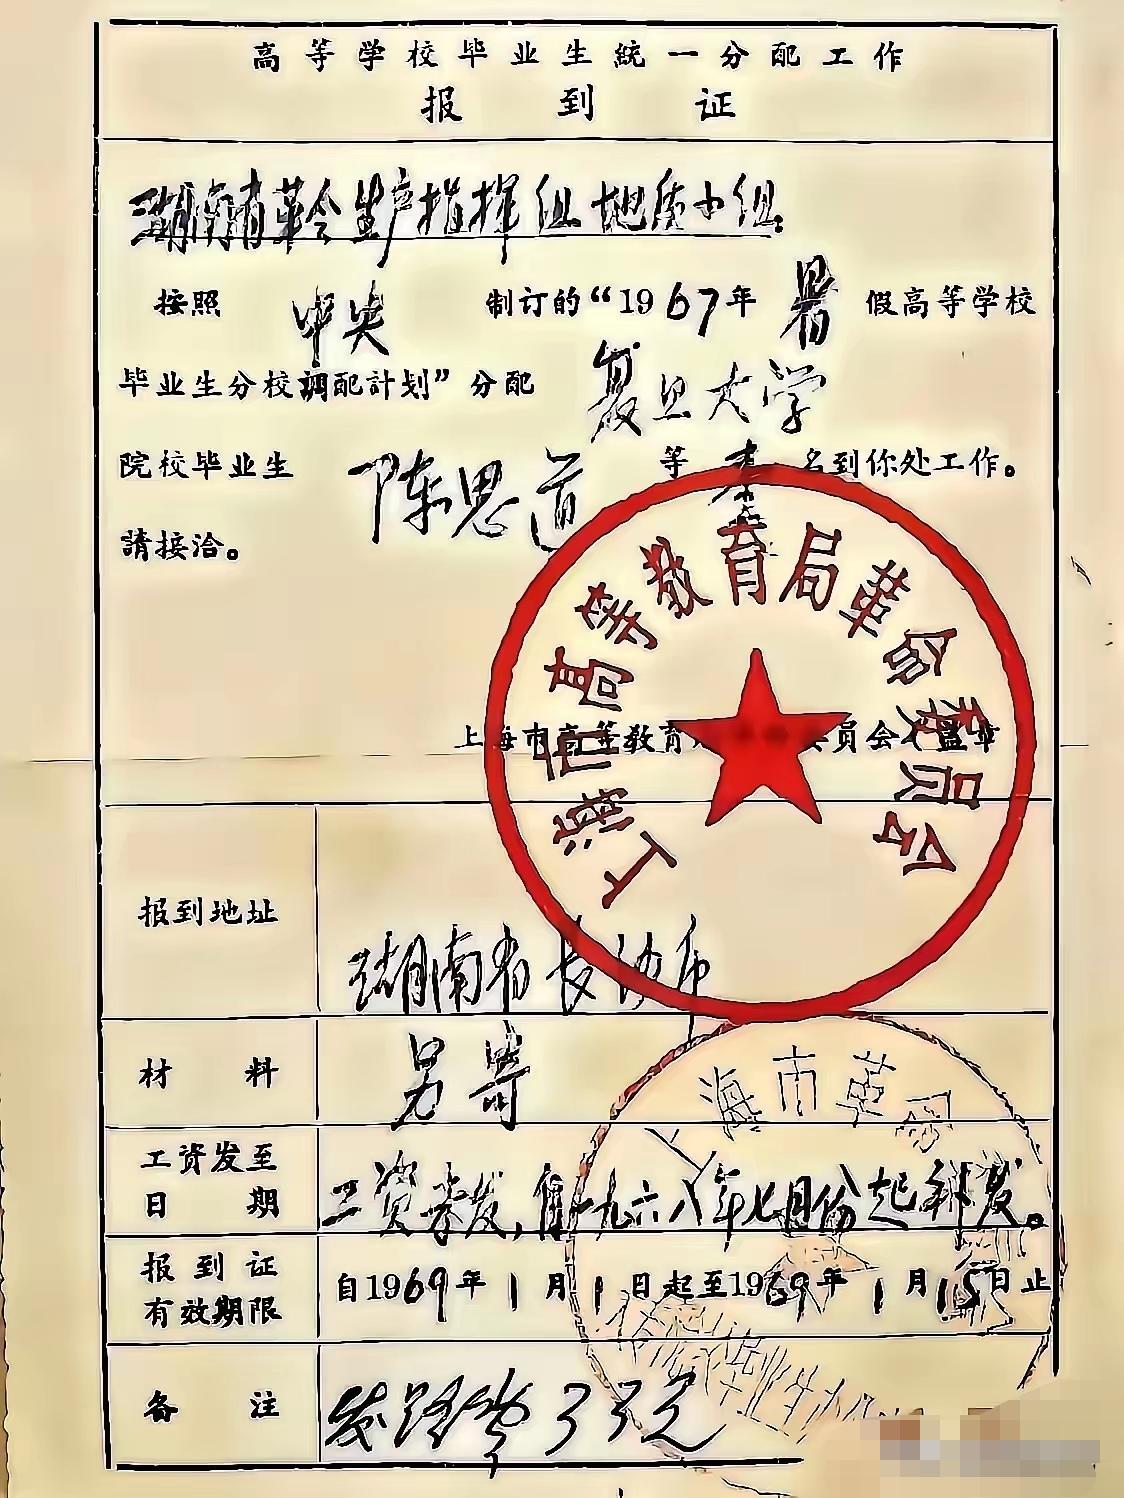 高等学校毕业生統一分配工作
报到证
湖南省革命生产指挥组地质小组
按照 中央 制订的“1967年 暑 假高等学校
毕业生分校調配計划”分配 复旦大学
院校毕业生 陈思道 等 壹 名到你处工作。
請接洽。
上海市高等教育局革命委員会(盖章
上海市高等教育局革命委員会
报到地址
湖南省长沙市
材料
另寄
工资发至
日期
工资未发,自一九六八年七月份起补发。
报到证
有效期限
自1969年1月1日起至1969年1月15日止
备注
发路费33元
上海市革
毕业生办